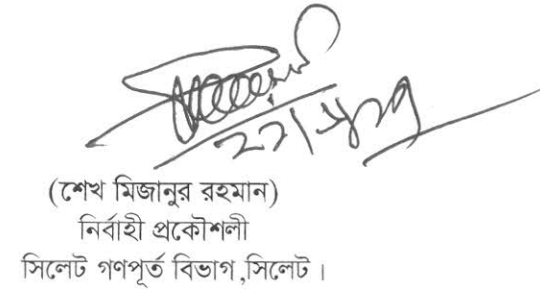 (শেখ মিজানুর রহমান)
নির্বাহী প্রকৌশলী
সিলেট গণপূর্ত বিভাগ,সিলেট।